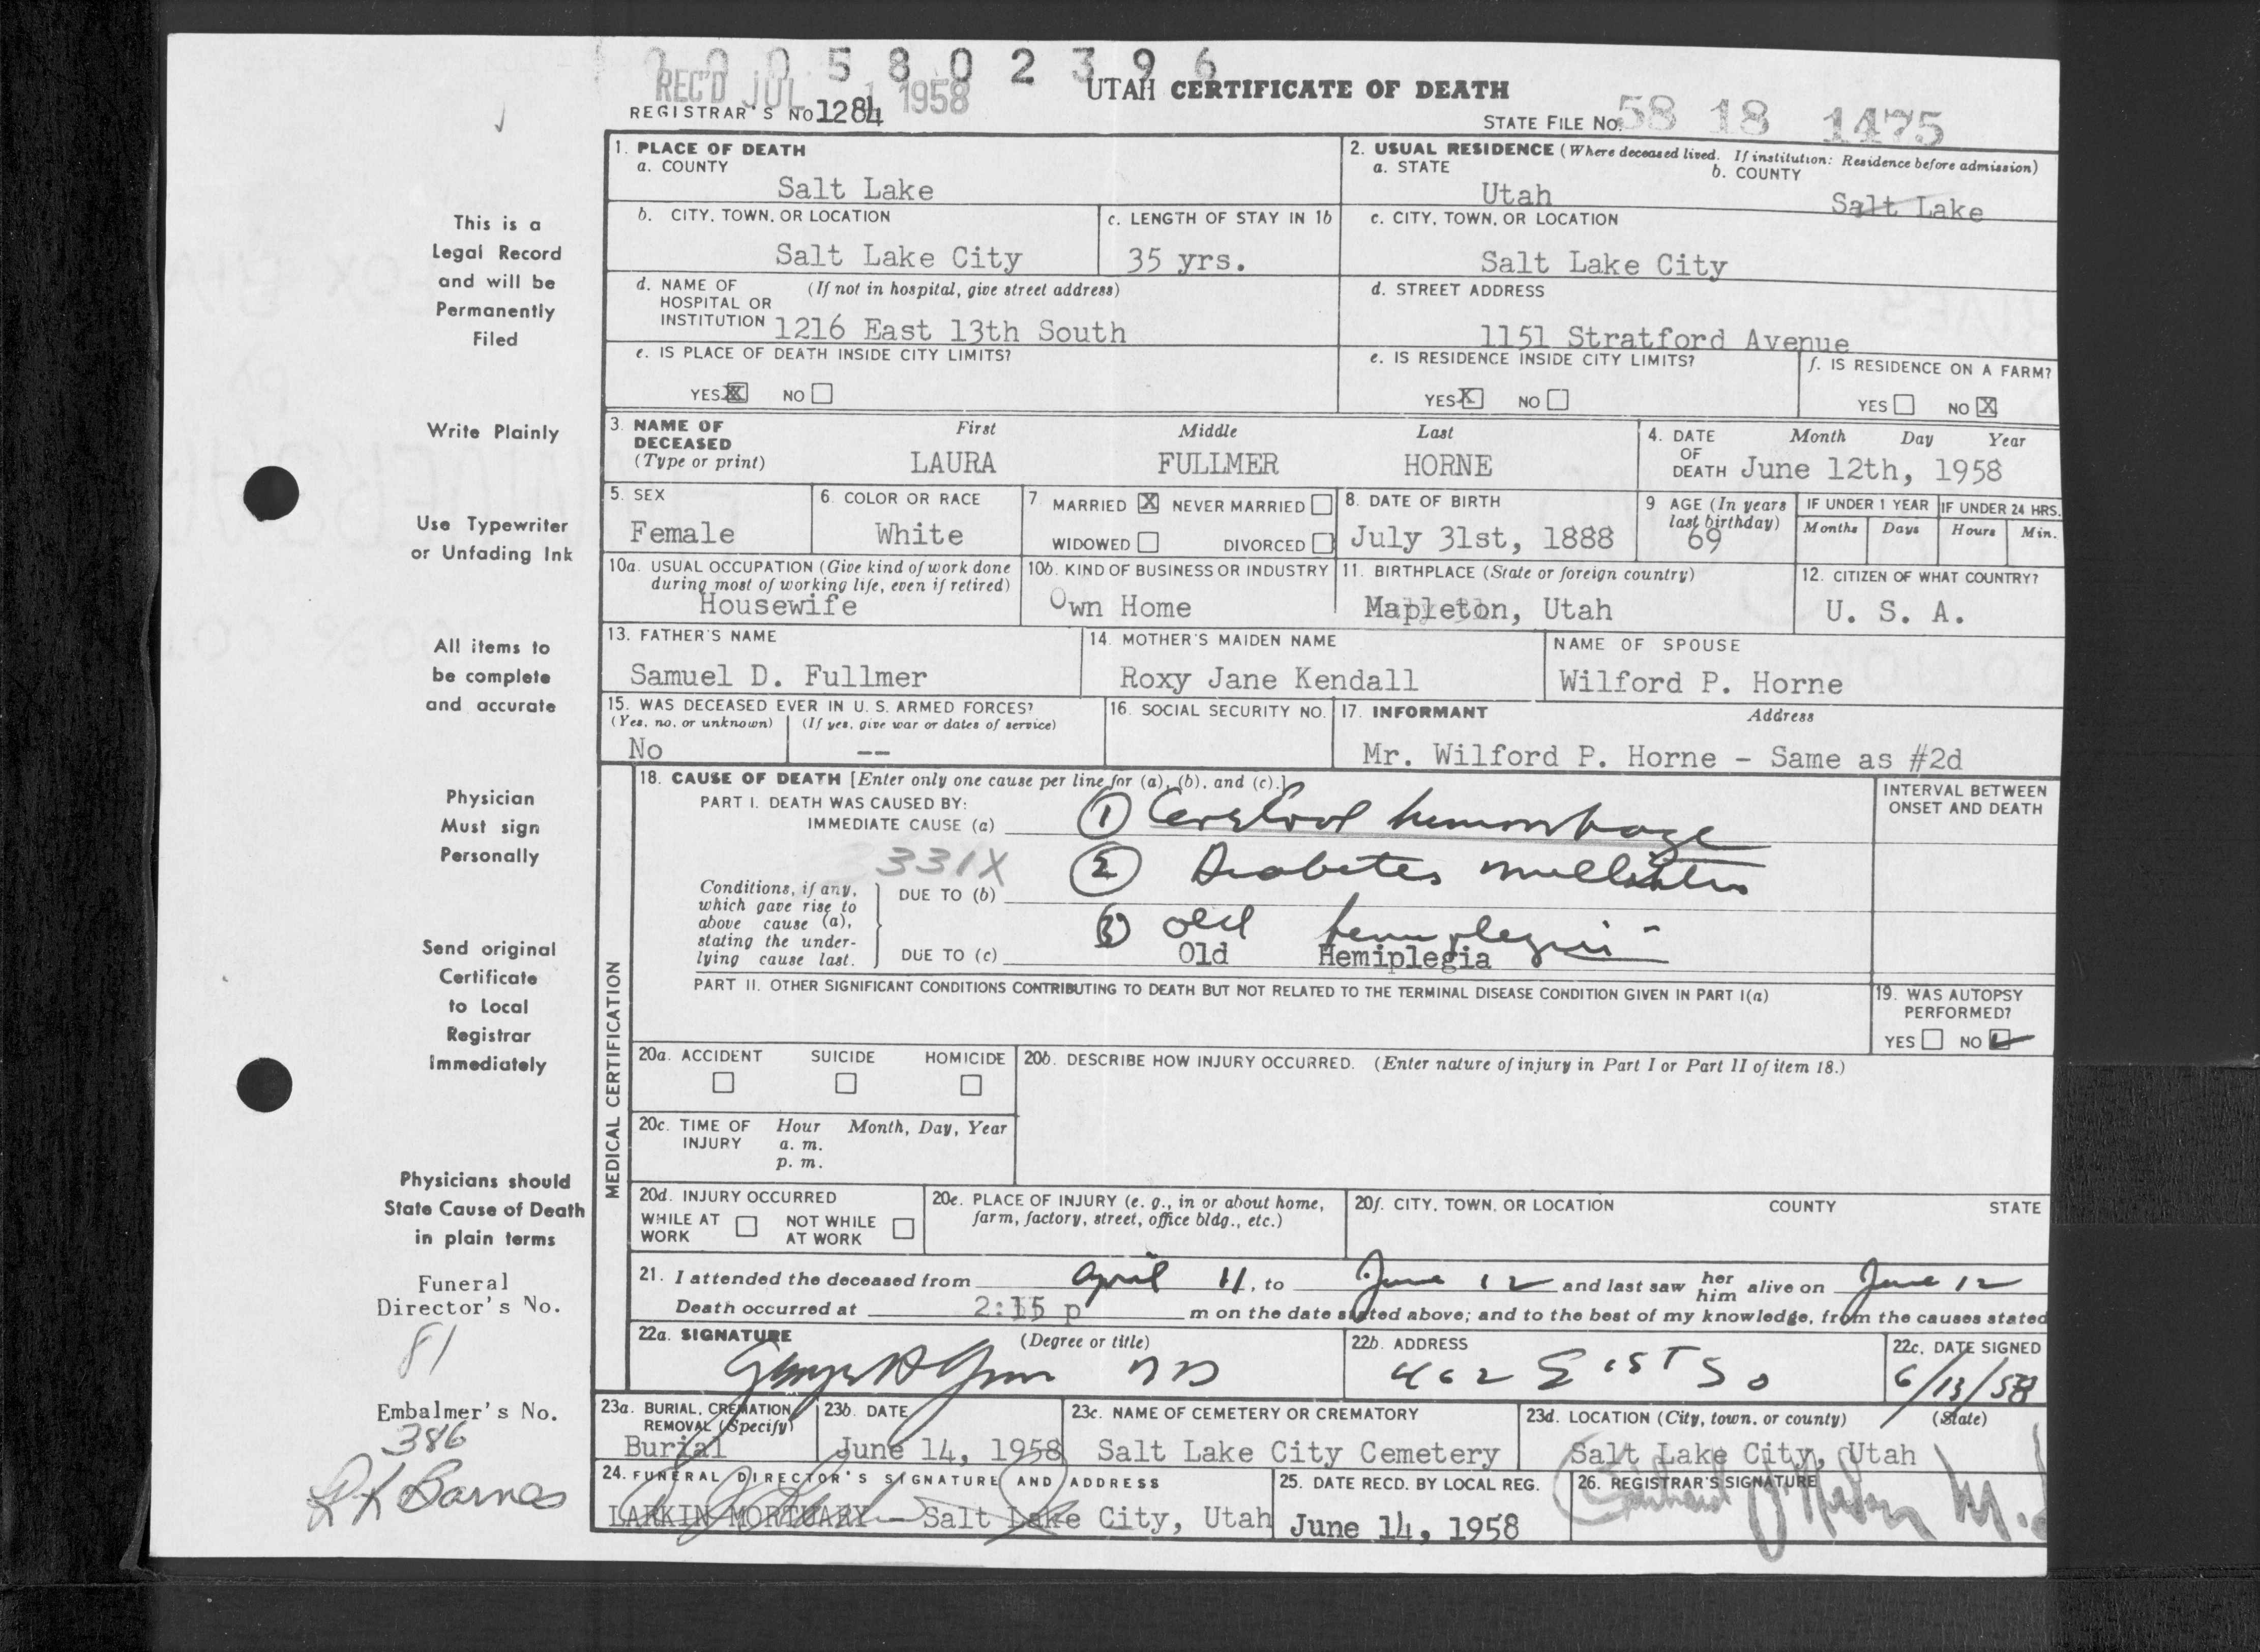 0 0 0 5 8 0 2 3 9 6
REC'D JUL 1 1958
UTAH CERTIFICATE OF DEATH
REGISTRAR'S No 1284
STATE FILE No. 58 18 1475
This is a
Legal Record
and will be
Permanently
Filed
Write Plainly
Use Typewriter
or Unfading Ink
All items to
be complete
and accurate
Physician
Must sign
Personally
Send original
Certificate
to Local
Registrar
Immediately
Physicians should
State Cause of Death
in plain terms
Funeral
Director's No.
81
Embalmer's No.
386
Barnes
1. PLACE OF DEATH
a. COUNTY
Salt Lake
2. USUAL RESIDENCE (Where deceased lived. If institution: Residence before admission)
a. STATE
Utah
b. COUNTY
Salt Lake
b. CITY, TOWN, OR LOCATION
Salt Lake City
c. LENGTH OF STAY IN 1b
35 yrs.
c. CITY, TOWN, OR LOCATION
Salt Lake City
d. NAME OF (If not in hospital, give street address)
HOSPITAL OR
INSTITUTION 1216 East 13th South
d. STREET ADDRESS
1151 Stratford Avenue
e. IS PLACE OF DEATH INSIDE CITY LIMITS?
YES X NO
e. IS RESIDENCE INSIDE CITY LIMITS?
YES X NO
f. IS RESIDENCE ON A FARM?
YES NO X
3. NAME OF
DECEASED
(Type or print)
First Middle Last
LAURA FULLMER HORNE
4. DATE Month Day Year
OF
DEATH June 12th, 1958
5. SEX
Female
6. COLOR OR RACE
White
7. MARRIED X NEVER MARRIED
WIDOWED DIVORCED
8. DATE OF BIRTH
July 31st, 1888
9 AGE (In years
last birthday)
69
IF UNDER 1 YEAR IF UNDER 24 HRS.
Months Days Hours Min.
10a. USUAL OCCUPATION (Give kind of work done
during most of working life, even if retired)
Housewife
10b. KIND OF BUSINESS OR INDUSTRY
Own Home
11. BIRTHPLACE (State or foreign country)
Mapleton, Utah
12. CITIZEN OF WHAT COUNTRY?
U. S. A.
13. FATHER'S NAME
Samuel D. Fullmer
14. MOTHER'S MAIDEN NAME
Roxy Jane Kendall
NAME OF SPOUSE
Wilford P. Horne
15. WAS DECEASED EVER IN U. S. ARMED FORCES?
(Yes, no, or unknown) (If yes, give war or dates of service)
No --
16. SOCIAL SECURITY NO.
17. INFORMANT Address
Mr. Wilford P. Horne - Same as #2d
MEDICAL CERTIFICATION
18. CAUSE OF DEATH [Enter only one cause per line for (a), (b), and (c).]
PART I. DEATH WAS CAUSED BY:
IMMEDIATE CAUSE (a) 1 Cerebral hemorrhage
331X
Conditions, if any,
which gave rise to
above cause (a),
stating the under-
lying cause last.
DUE TO (b) 2 Diabetes mellitus
3 old hemiplegia
DUE TO (c) Old Hemiplegia
INTERVAL BETWEEN
ONSET AND DEATH
PART II. OTHER SIGNIFICANT CONDITIONS CONTRIBUTING TO DEATH BUT NOT RELATED TO THE TERMINAL DISEASE CONDITION GIVEN IN PART I(a)
19. WAS AUTOPSY
PERFORMED?
YES NO ✓
20a. ACCIDENT SUICIDE HOMICIDE
20b. DESCRIBE HOW INJURY OCCURRED. (Enter nature of injury in Part I or Part II of item 18.)
20c. TIME OF Hour Month, Day, Year
INJURY a. m.
p. m.
20d. INJURY OCCURRED
WHILE AT NOT WHILE
WORK AT WORK
20e. PLACE OF INJURY (e. g., in or about home,
farm, factory, street, office bldg., etc.)
20f. CITY, TOWN, OR LOCATION COUNTY STATE
21. I attended the deceased from April 11, to June 12 and last saw her him alive on June 12
Death occurred at 2:15 p m on the date stated above; and to the best of my knowledge, from the causes stated
22a. SIGNATURE (Degree or title)
MD
22b. ADDRESS
462 E 1st So
22c. DATE SIGNED
6/13/58
23a. BURIAL, CREMATION,
REMOVAL (Specify)
Burial
23b. DATE
June 14, 1958
23c. NAME OF CEMETERY OR CREMATORY
Salt Lake City Cemetery
23d. LOCATION (City, town, or county) (State)
Salt Lake City, Utah
24. FUNERAL DIRECTOR'S SIGNATURE AND ADDRESS
LARKIN MORTUARY - Salt Lake City, Utah
25. DATE RECD. BY LOCAL REG.
June 14, 1958
26. REGISTRAR'S SIGNATURE